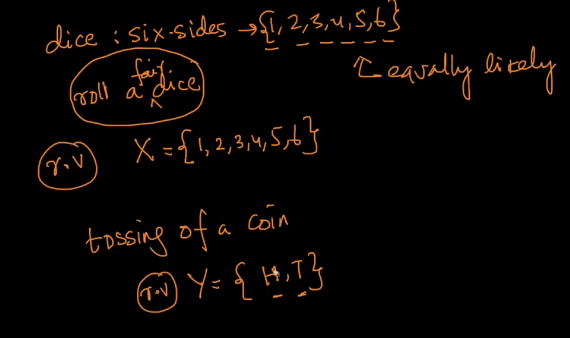 dice : six-sides → {1, 2, 3, 4, 5, 6}
equally likely
roll a fair dice
r.v X = {1, 2, 3, 4, 5, 6}
tossing of a coin
r.v Y = { H, T }